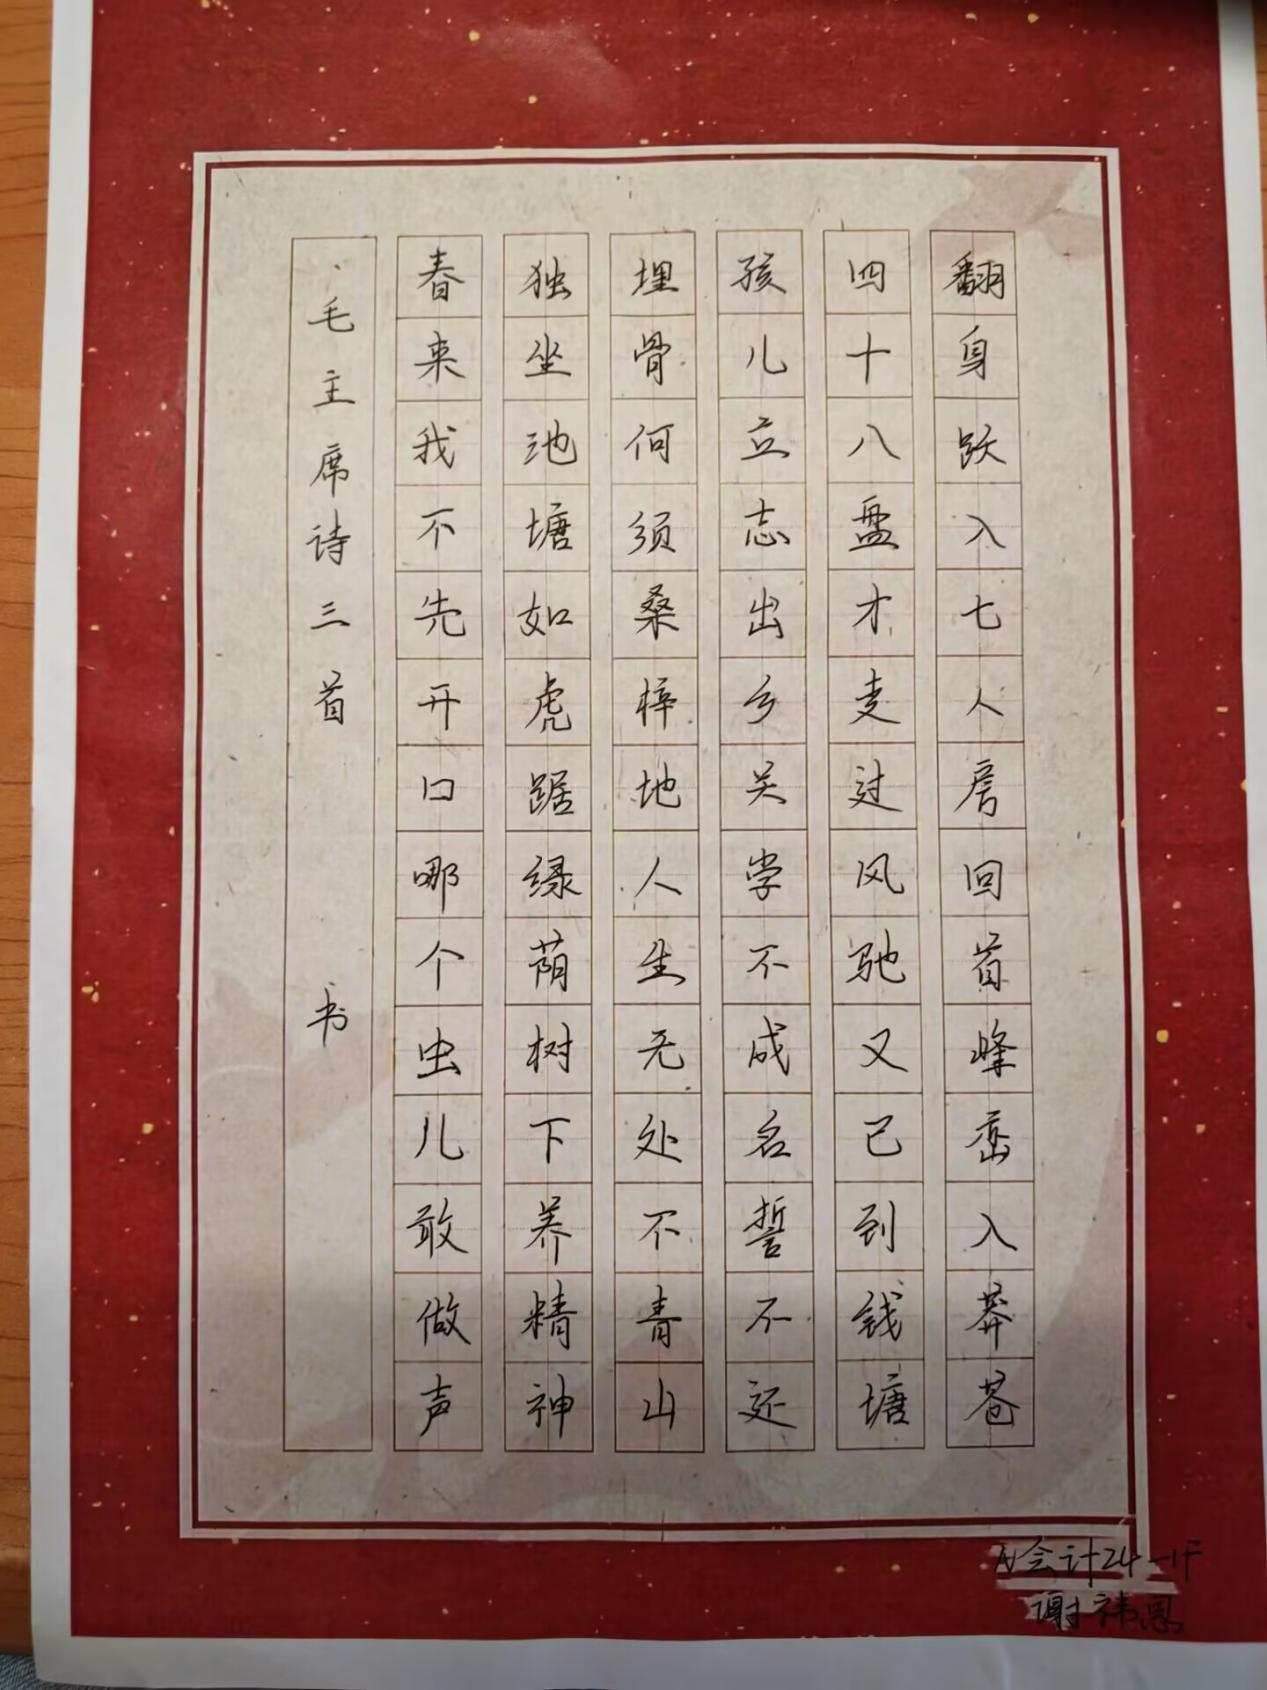 翻身跃入七人房回首峰峦入莽苍
四十八盘才走过风驰又已到钱塘
孩儿立志出乡关学不成名誓不还
埋骨何须桑梓地人生无处不青山
独坐池塘如虎踞绿荫树下养精神
春来我不先开口哪个虫儿敢做声
毛主席诗三首 书
N会计24-1F
谢祎恩